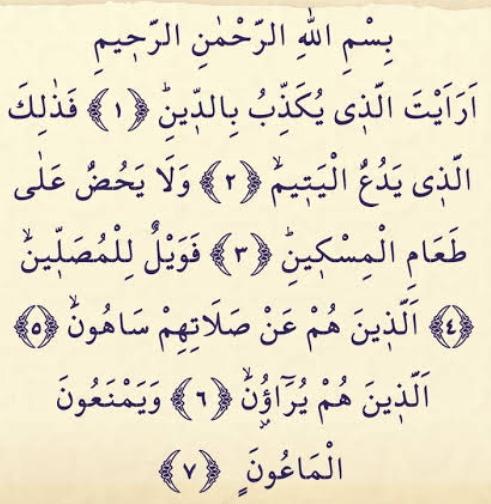 بِسْمِ اللهِ الرَّحْمٰنِ الرَّحٖيمِ
اَرَاَيْتَ الَّذٖى يُكَذِّبُ بِالدّٖينِؕ ﴿١﴾ فَذٰلِكَ
الَّذٖى يَدُعُّ الْيَتٖيمَۙ ﴿٢﴾ وَلَا يَحُضُّ عَلٰى
طَعَامِ الْمِسْكٖينِؕ ﴿٣﴾ فَوَيْلٌ لِلْمُصَلّٖينَۙ
﴿٤﴾ اَلَّذٖينَ هُمْ عَنْ صَلَاتِهِمْ سَاهُونَۙ ﴿٥﴾
اَلَّذٖينَ هُمْ يُرَٓاؤُ۫نَۙ ﴿٦﴾ وَيَمْنَعُونَ
الْمَاعُونَ ﴿٧﴾